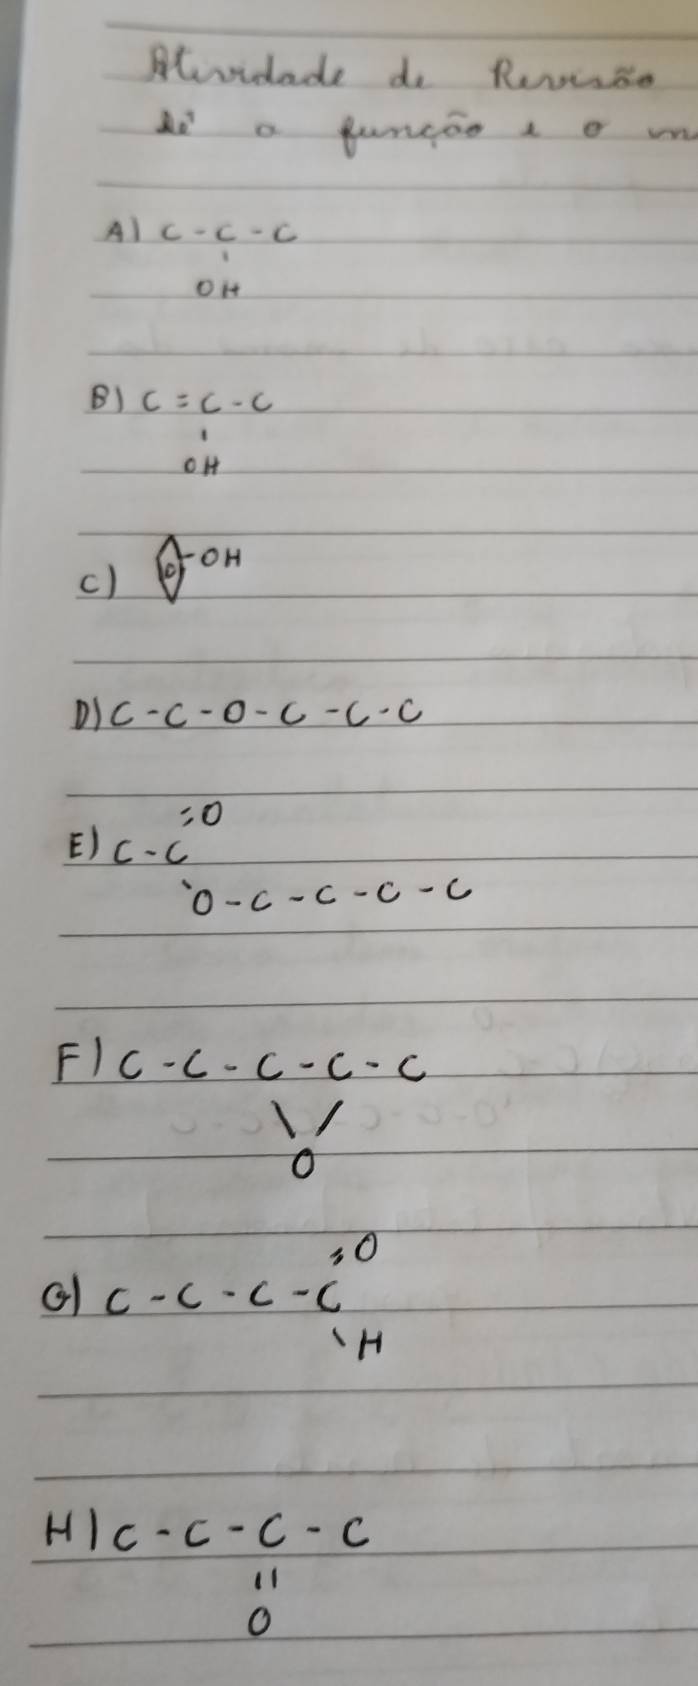 Atividade de Revisão
Dê a função e o
A) C - C - C
OH
B) C = C - C
OH
C) -OH
D) C - C - O - C - C - C
=O
E) C - C
O - C - C - C - C
F) C - C - C - C - C
O
=O
G) C - C - C - C
H
H) C - C - C - C
O